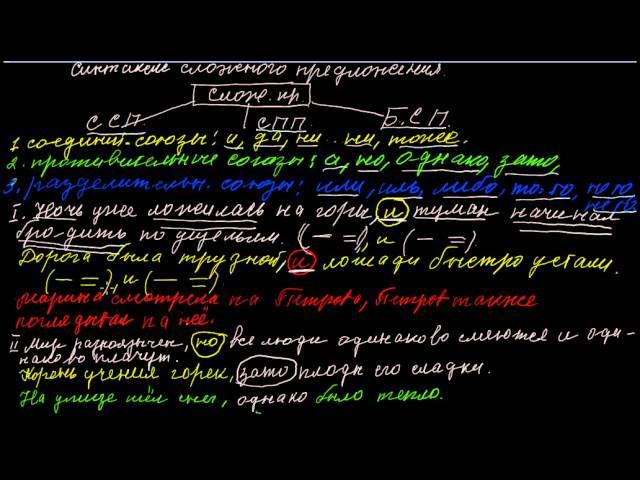 Синтаксис сложного предложения.
Слож. пр.
ССП. СПП. Б.С.П.
1. соединит. союзы: и, да, ни.. ни, тоже.
2. противительные союзы: а, но, однако, зато,
3. разделительн. союзы: или, иль, либо, то-то,
I. Ночь уже ложилась на горы, и туман начинал
бродить по ущельям. (— =), и (— =)
Дорога была трудной, и лошади быстро устали.
(— =), и (— =)
Марина смотрела на Петрова, Петров также
поглядывал на неё.
II Мир разноязычен, но все люди одинаково смеются и оди-
наково плачут.
Корень учения горек, зато плоды его сладки.
На улице шёл снег, однако было тепло.